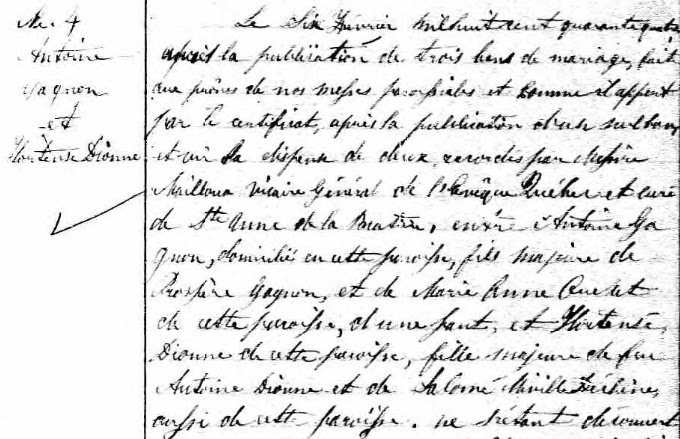 M. 4
Antoine
Gagnon
et
Hortense Dionne
Le Six Février mil huit cent quarante quatre
après la publication de trois bans de mariage, fait
aux prônes de nos messes paroissiales et comme il appert
par le certificat, après la publication d'un seul ban,
et vu la dispense de deux accordés par Messire
Mailloux Vicaire Général de l'Evêque Québec et curé
de Ste Anne de la , entre Antoine Ga
gnon, domicilié en cette paroisse, fils majeure de
Prospère Gagnon, et de Marie Anne Ouellet
de cette paroisse, d'une part, et Hortense
Dionne de cette paroisse, fille majeure de feu
Antoine Dionne et de Salomé Miville Déchène,
aussi de cette paroisse. ne s'étant découvert